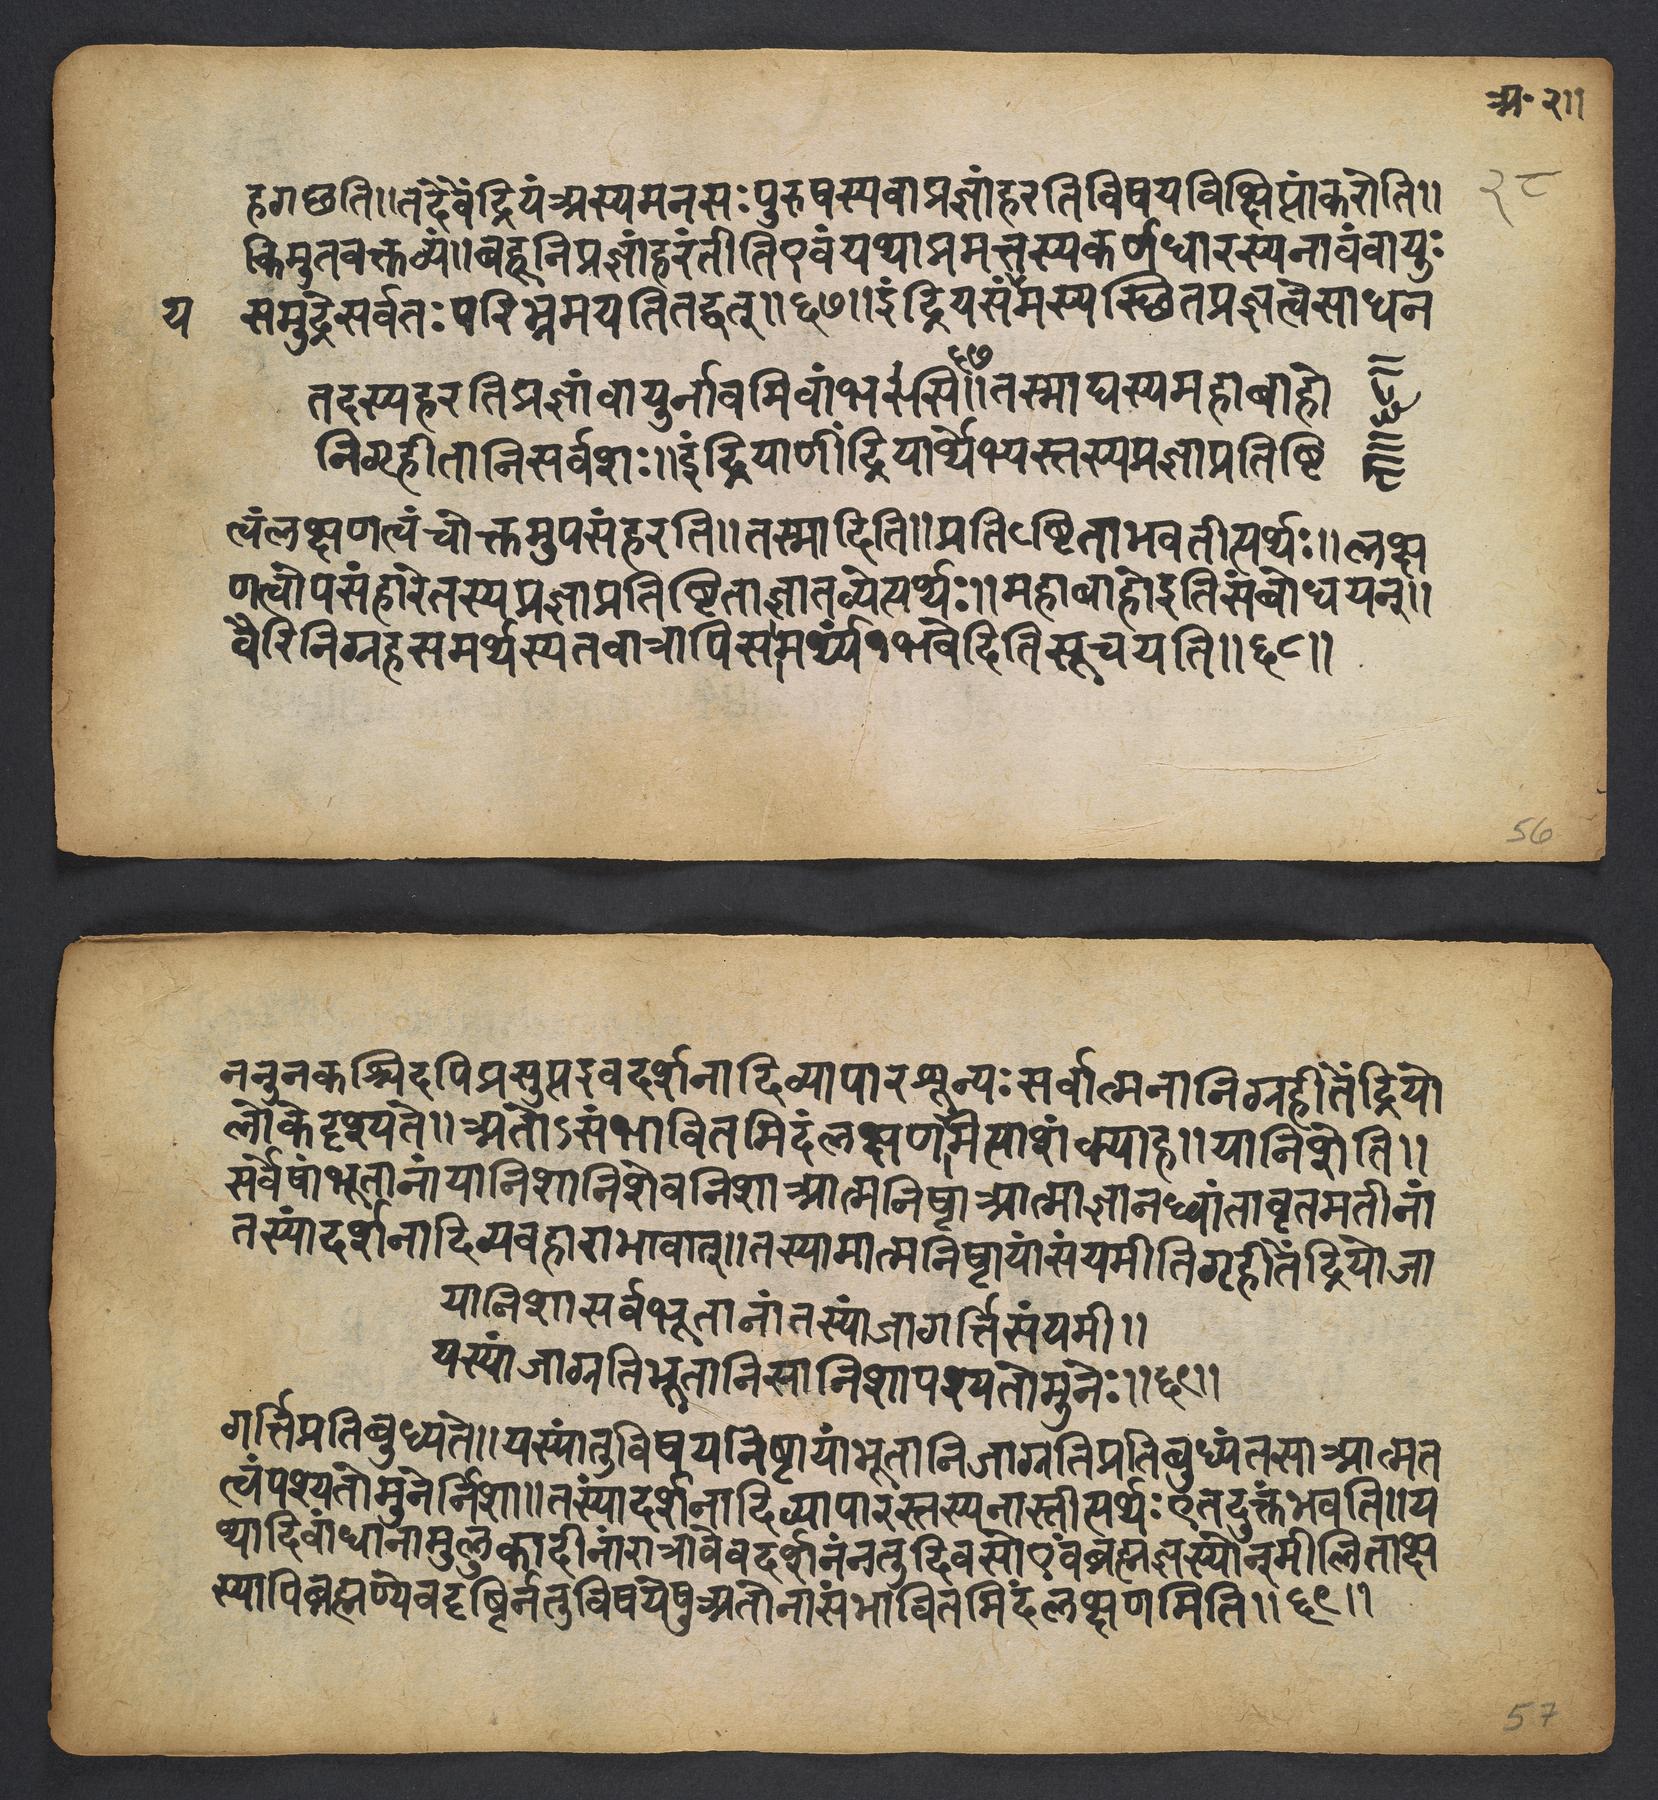 अ॰ २॥
२८
हगछति॥तदैवेंद्रियंअस्यमनसःपुरुषस्यवाप्रज्ञांहरतिविषयविक्षिप्तांकरोति॥
किमुतवक्तव्यं॥बहूनिप्रज्ञांहरंतीतिएवंयथाप्रमत्तस्यकर्णधारस्यनावंवायुः
य
समुद्रेसर्वतःपरिभ्रमयतितद्वत्॥६७॥इंद्रियसंमस्यस्थितप्रज्ञत्वेसाधन
६७
तदस्यहरतिप्रज्ञांवायुर्नावमिवांभसि॥तस्माद्यस्यमहाबाहो
निगृहीतानिसर्वशः॥इंद्रियाणींद्रियार्थेभ्यस्तस्यप्रज्ञाप्रतिष्टि
ता॥६८॥
त्वंलक्षणत्वंचोक्तमुपसंहरति॥तस्मादिति॥प्रतिष्टिताभवतीत्यर्थः॥लक्ष
णत्वोपसंहारेतस्यप्रज्ञाप्रतिष्टिताज्ञातव्येत्यर्थः॥महाबाहोइतिसंबोधयन्॥
वैरिनिग्रहसमर्थस्यतवात्रापिसामर्थ्यंभवेदितिसूचयति॥६८॥
56
ननुनकश्चिदपिप्रसुप्तइवदर्शनादिव्यापारशून्यःसर्वात्मनानिग्रहीतेंद्रियो
लोकेदृश्यते॥अतोऽसंभावितमिदंलक्षणमित्याशंक्याह॥यानिशेति॥
सर्वेषांभूतानांयानिशानिशेवनिशाआत्मनिष्ठाआत्माज्ञानध्वांतावृतमतीनां
तस्यांदर्शनादिव्यवहाराभावात्॥तस्यामात्मनिष्ठायांसंयमीतिगृहीतेंद्रियोजा
यानिशासर्वभूतानांतस्यांजागर्त्तिसंयमी॥
यस्यांजाग्रतिभूतानिसानिशापश्यतोमुनेः॥६९॥
गर्त्तिप्रतिबुध्यते॥यस्यांतुविषयनिष्ठायांभूतानिजाग्रतिप्रतिबुध्यंतेसाआत्मत
त्वंपश्यतोमुनेर्निशा॥तस्यांदर्शनादिव्यापारस्तस्यनास्तीत्यर्थःएतदुक्तंभवति॥य
थादिवांधानामुलुकादीनांरात्रावेवदर्शनंनतुदिवसेएवंब्रह्मज्ञस्योन्मीलिताक्ष
स्यापिब्रह्मण्येवदृष्टिर्नतुविषयेषुअतोनासंभावितमिदंलक्षणमिति॥६९॥
57